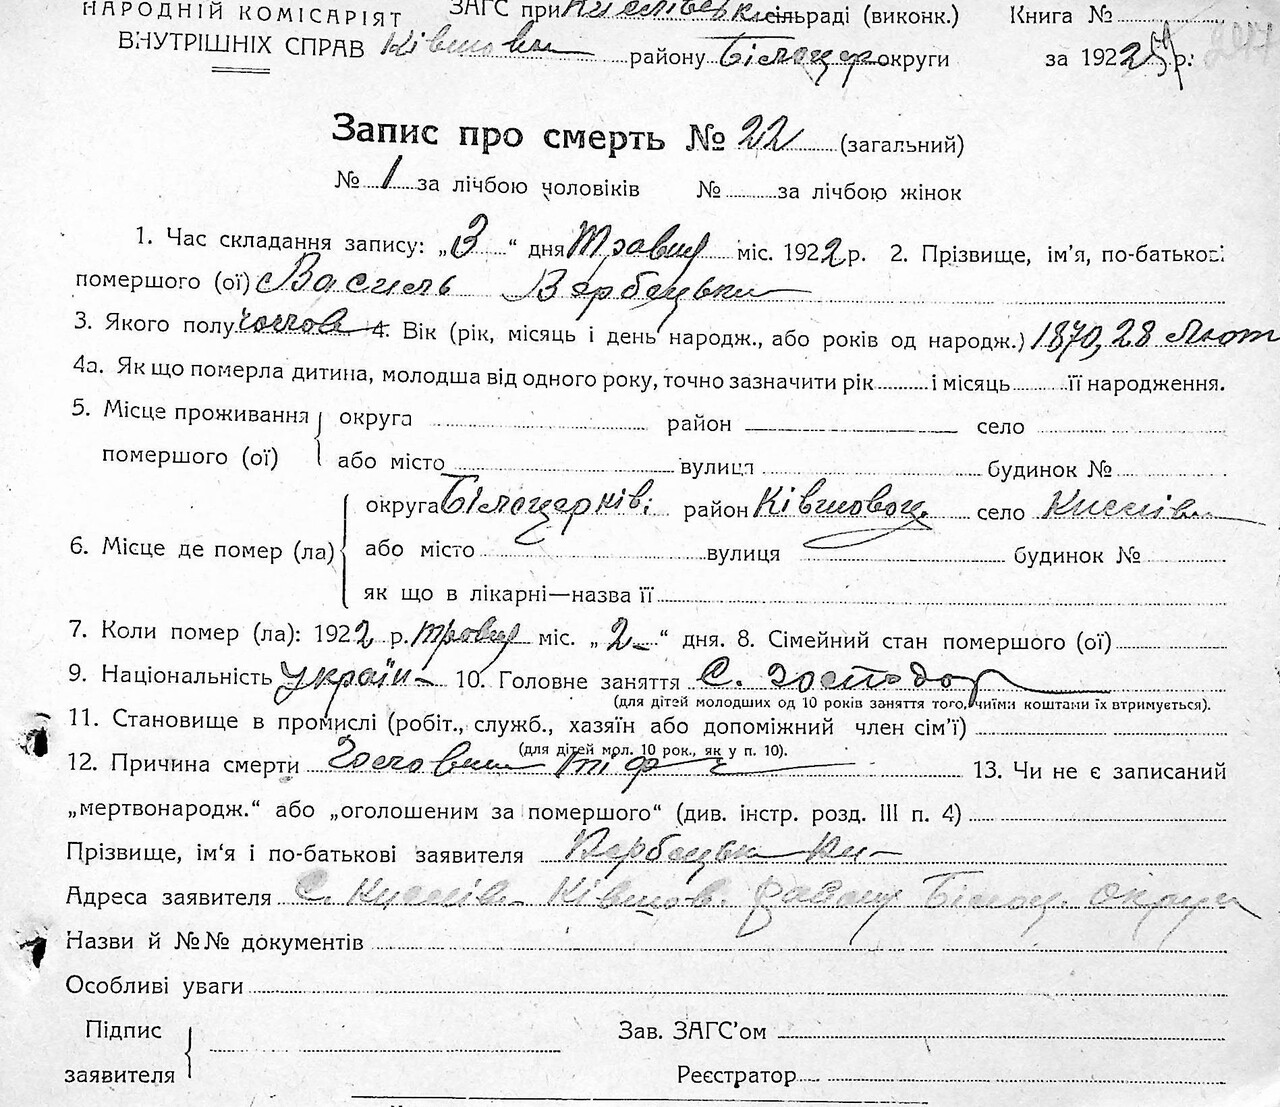 НАРОДНІЙ КОМІСАРІЯТ ЗАГС при Кислівськ сільраді (виконк.) Книга №
ВНУТРІШНІХ СПРАВ Ківшов району Білоцер округи за 1922 р.
Запис про смерть № 22 (загальний)
№ 1 за лічбою чоловіків № за лічбою жінок
1. Час складання запису: „3“ дня Травня міс. 1922 р. 2. Прізвище, ім'я, по-батькові
помершого (ої) Василь Вербецьки
3. Якого полу чолов 4. Вік (рік, місяць і день народж., або років од народж.) 1870, 28 Лют
4а. Як що померла дитина, молодша від одного року, точно зазначити рік і місяць її народження.
5. Місце проживання округа район село
помершого (ої) або місто вулиця будинок №
округа Білоцерків. район Ківшовоц. село Кислів
6. Місце де помер (ла) або місто вулиця будинок №
як що в лікарні—назва її
7. Коли помер (ла): 1922 р. травня міс. „2“ дня. 8. Сімейний стан помершого (ої)
9. Національність україн 10. Головне заняття С. господар
(для дітей молодших од 10 років заняття того, чиїми коштами їх втримується).
11. Становище в промислі (робіт., служб., хазяїн або допоміжний член сім'ї)
(для дітей мол. 10 рок., як у п. 10).
12. Причина смерти тіф 13. Чи не є записаний
„мертвонародж.“ або „оголошеним за помершого“ (див. інстр. розд. III п. 4)
Прізвище, ім'я і по-батькові заявителя Вербецьк
Адреса заявителя С. Кислів Ківшов. району Білоц. округи
Назви й №№ документів
Особливі уваги
Підпис Зав. ЗАГС'ом
заявителя Реєстратор